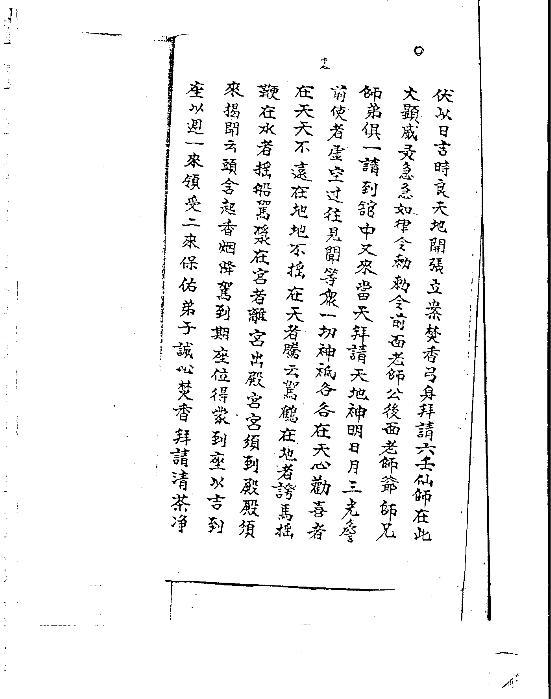 伏以日吉時良天地開張立案焚香弓身拜請六壬仙師在此
大顯威灵急急如律令勅勅令前面老師公後面老師爺師兄
師弟俱一請到舘中又來當天拜請天地神明日月三光詹
前使者虛空过往見聞等衆一切神祗各各在天心勸喜者
在天天不遠在地地不摇在天者騰云駕鶴在地者誇馬摇
鞭在水者摇船駕漿在宮者離宮出殿宮宮須到殿殿須
來揭開云頭舍起香烟降駕到期座位得衆到座以吉到
座以週一來領受二來保佑弟子誠心焚香拜請清茶净